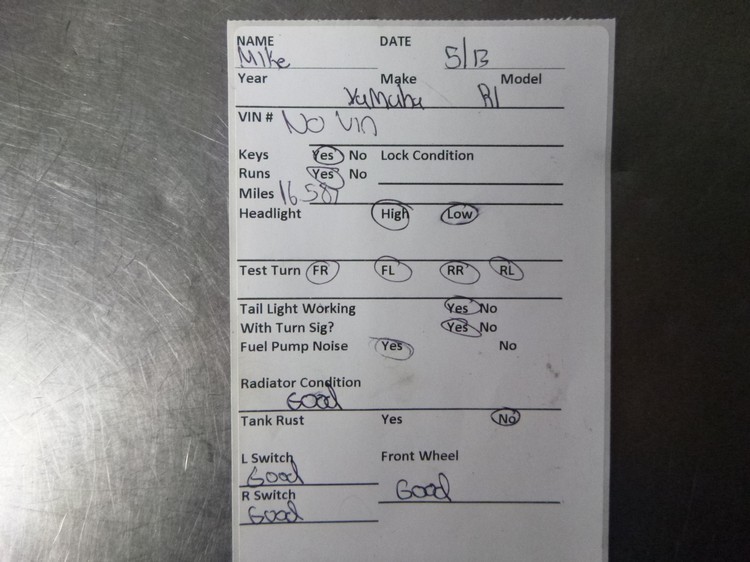 NAME DATE
Mike 5/13
Year Make Model
Yamaha R1
VIN # No Vin
Keys Yes No Lock Condition
Runs Yes No
Miles 16 587
Headlight High Low
Test Turn FR FL RR RL
Tail Light Working Yes No
With Turn Sig? Yes No
Fuel Pump Noise Yes No
Radiator Condition
Good
Tank Rust Yes No
L Switch Front Wheel
Good
R Switch Good
Good